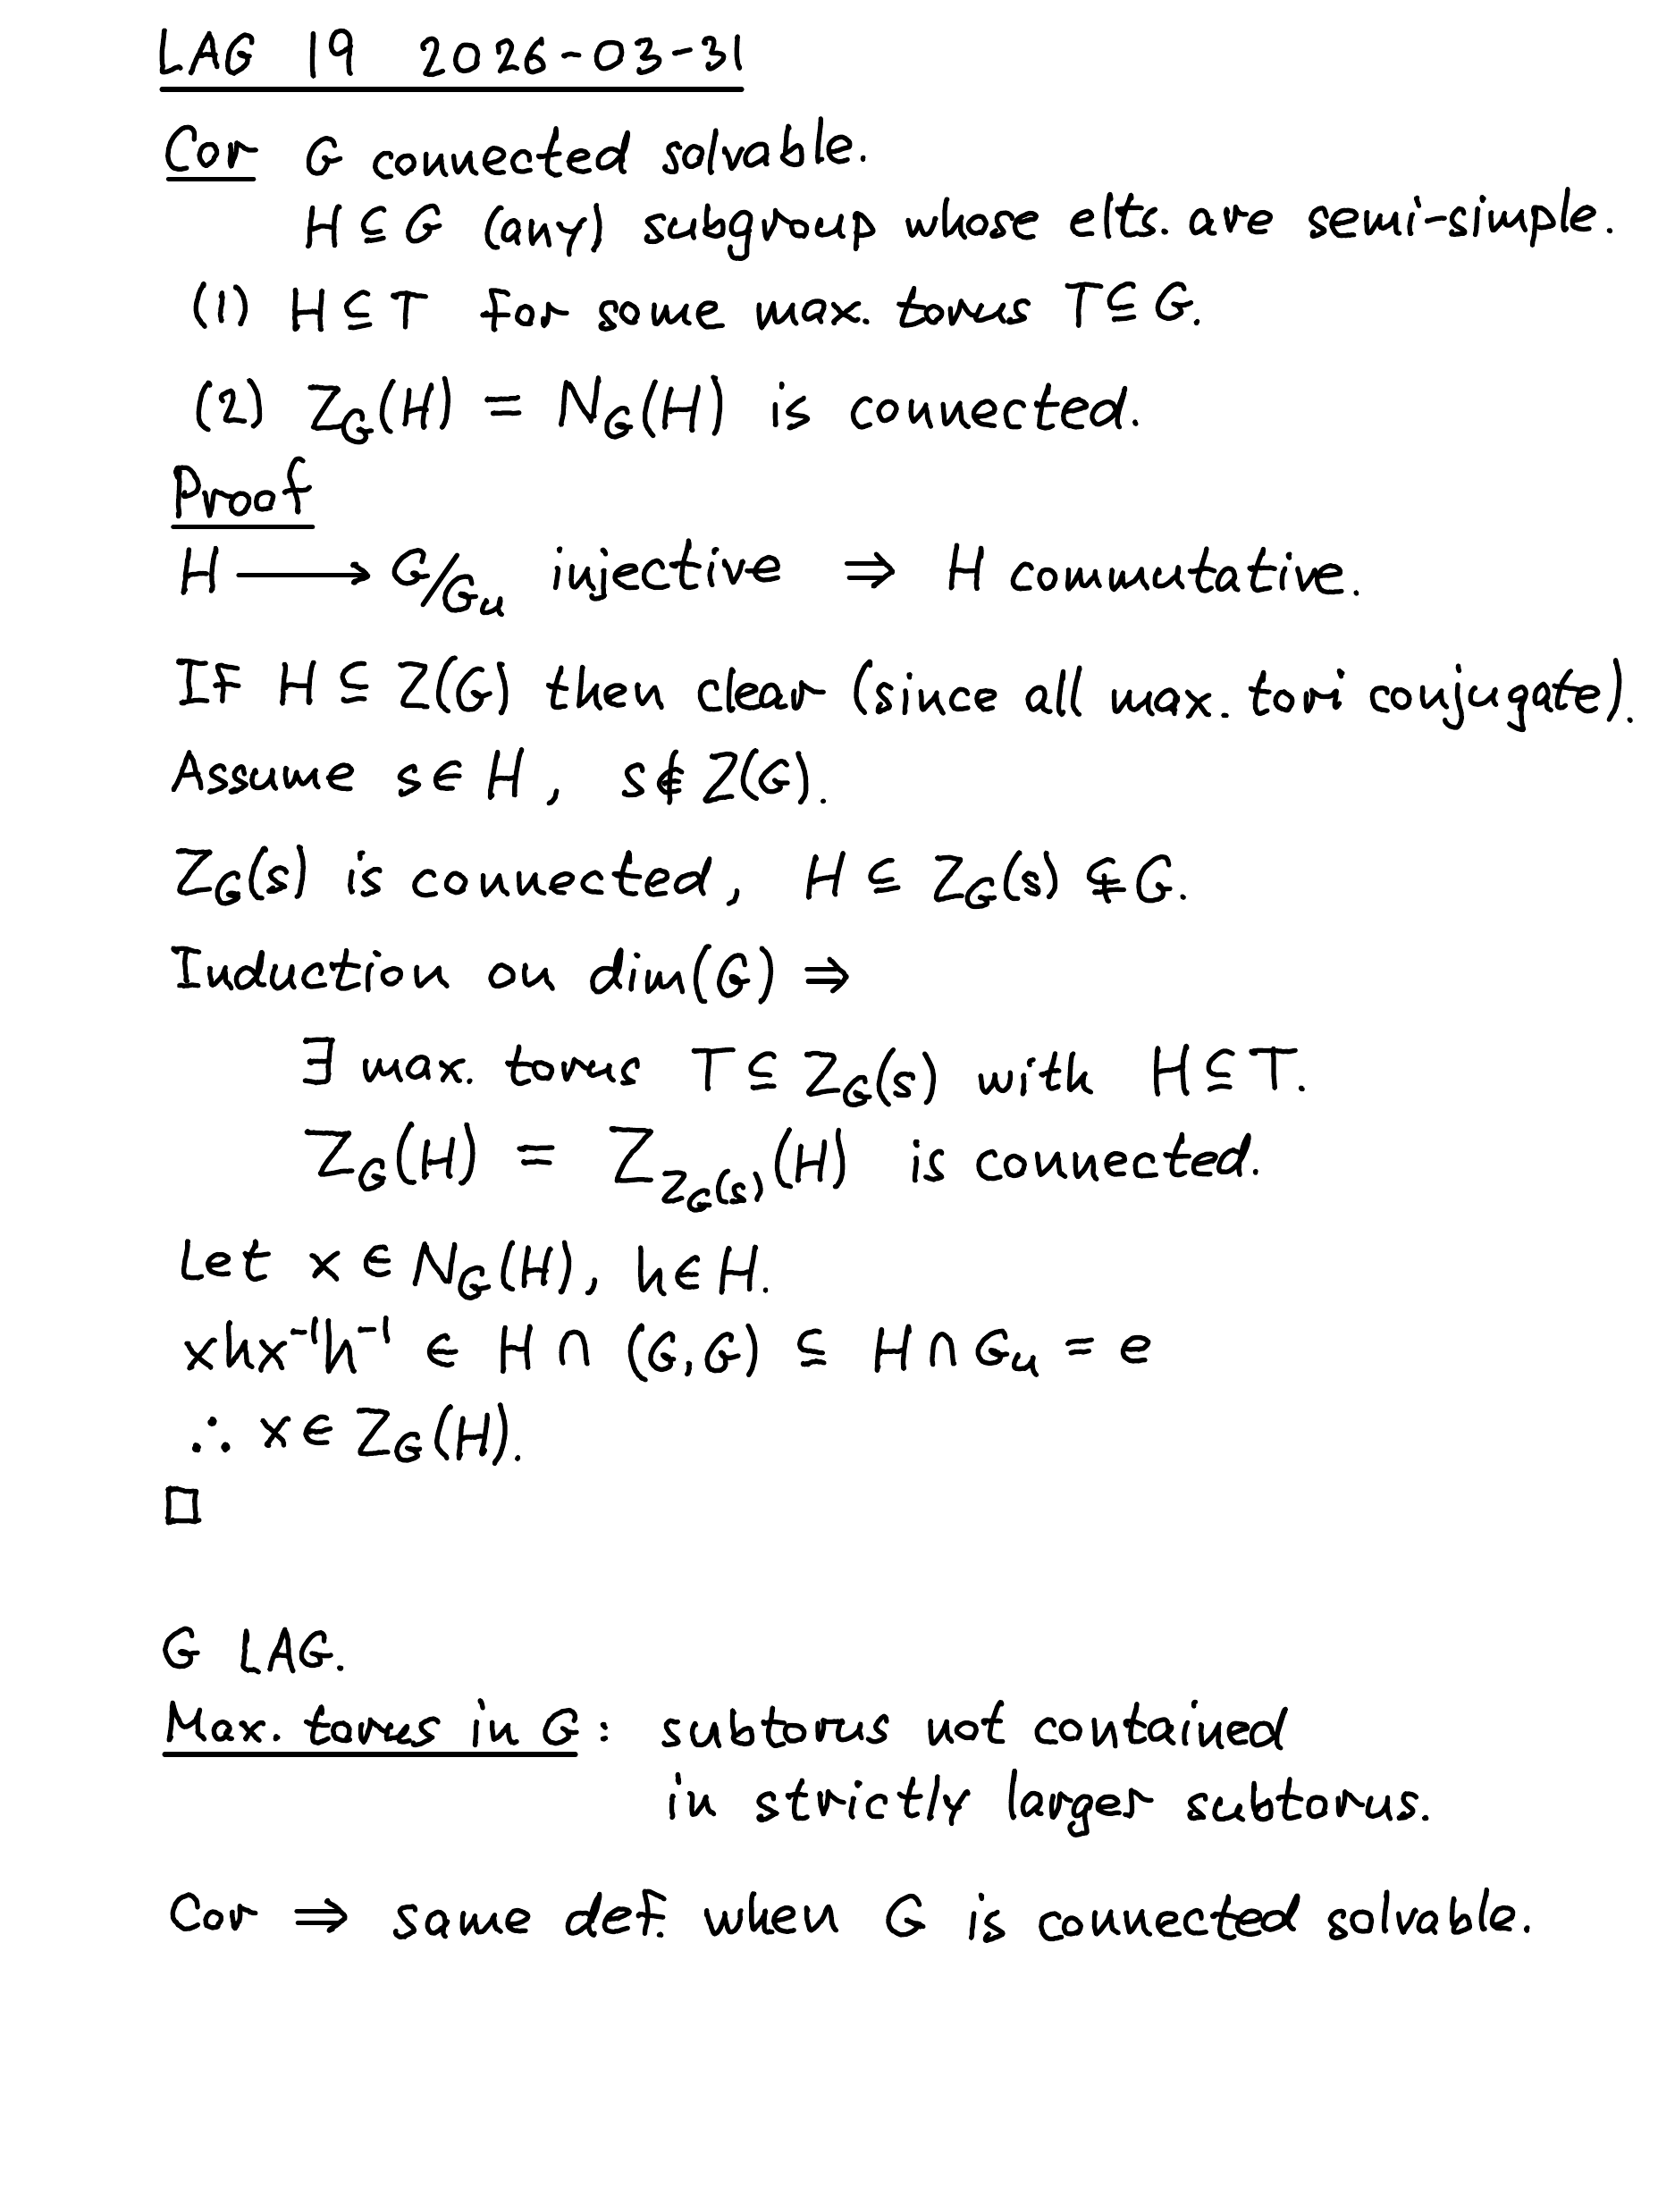 LAG 19 2026-03-31
Cor G connected solvable.
H ⊆ G (any) subgroup whose elts. are semi-simple.
(1) H ⊆ T for some max. torus T ⊆ G.
(2) Z_G(H) = N_G(H) is connected.
Proof
H ⟶ G/G_u injective ⇒ H commutative.
If H ⊆ Z(G) then clear (since all max. tori conjugate).
Assume s ∈ H, s ∉ Z(G).
Z_G(s) is connected, H ⊆ Z_G(s) ⊊ G.
Induction on dim(G) ⇒
∃ max. torus T ⊆ Z_G(s) with H ⊆ T.
Z_G(H) = Z_{Z_G(s)}(H) is connected.
Let x ∈ N_G(H), h ∈ H.
xhx⁻¹h⁻¹ ∈ H ∩ (G,G) ⊆ H ∩ G_u = e
∴ x ∈ Z_G(H).
□
G LAG.
Max. torus in G: subtorus not contained
in strictly larger subtorus.
Cor ⇒ same def. when G is connected solvable.